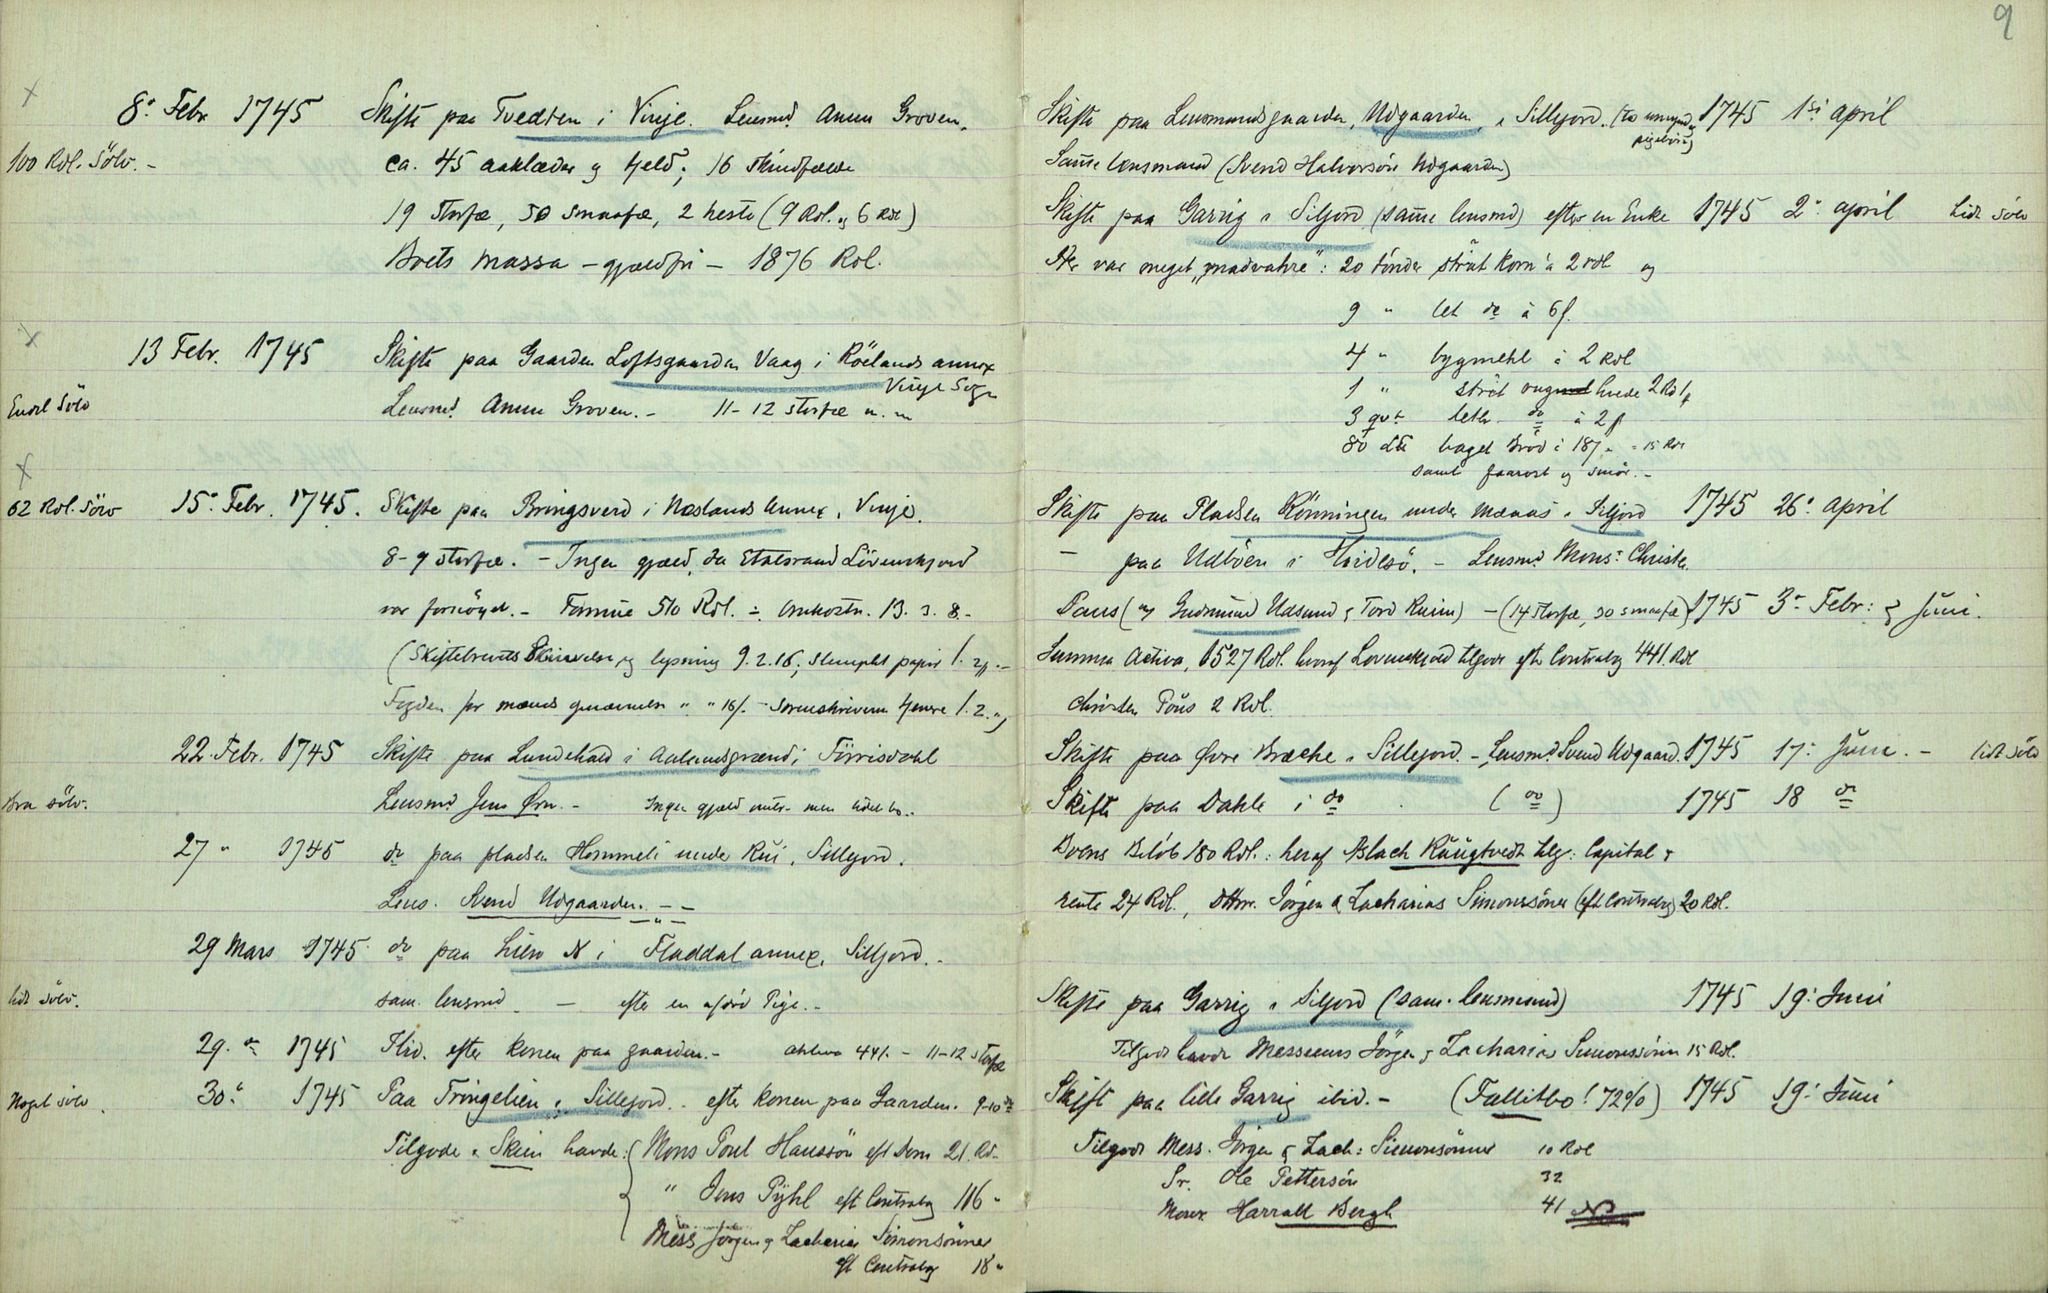 8de Febr. 1745 Skifte paa Tvedten i Vinje. Lensmd. Anun Groven.
100 Rdl. Sölv. - ca. 45 aaklæder og tjeld; 16 skindfælde
19 storfæ, 50 smaafæ, 2 heste (9 Rdl. og 6 Rdl)
Boets massa - gjældfri - 1876 Rdl.
13 Febr. 1745 Skifte paa Gaarden Loftsgaarden Vaag i Röelands annex
Vinje Sogn
Endel Sölv Lensmd. Anun Groven. - 11-12 storfæ m. m
62 Rdl. Sölv 15de Febr. 1745. Skifte paa Bringsverd i Næslands Annex, Vinje.
8-9 storfæ. - Ingen gjæld, da Etatsraad Lövenskjord
var fornöyet. - Formue 510 Rdl. ÷ Omkostn. 13. 3. 8. -
(Skiftebrevets Skrivelse og lysning 9.2.16, stemplet papir 1. 24. -
Fogden for mænds 16/. - Sorenskriveren 1. 2. ")
22. Febr. 1745 Skifte paa Lundehald i Aalandsgrænd i Törrisdahl
Bra sölv. Lensmd Jens Ørn. - Ingen gjæld men lidet bo. -
27 " 1745 do paa pladsen Hommeli under Rui, Sillejord.
Lens. Svend Udgaarden. - " -
29 Mars 1745 do paa Lien N i Fladdal annex, Silljord. -
lidt sölv. sam. lensmd - efter en afdöd Pige. -
29. do 1745 Ibid. efter konen paa gaarden. - aktiva 441. - 11-12 storfæ
Noget sölv 30. " 1745 Paa Tringelien i Sillejord. efter konen paa Gaarden. 9-10 do
Tilgode i Skien havde: Mons Poul Hanssön eft Dom 21 Rd. -
" Jens Pyhl eft Contrabog 116 "
Mess Jörgen og Zacharias Simonsönner
eft Contrabog 18 "
9
Skifte paa Lensmandsgaarden, Udgaarden, i Sillejord. (to 1745 1ste April
Samme lensmand (Svend Halvorsön Udgaarden)
Skifte paa Garvig i Siljord (samme lensmd) efter en Enke 1745 2. april Lidt sölv
Der var meget "madvahre": 20 tönder stridt korn a 2 rdl og
9 " let do à 6 f.
4 " bygmehl à 2 Rdl
1 " stridt hvede 2 Rdl
3 qvt. letter do à 2 f
80 baget Bröd à = 15 Rdl
samt faarost og smör. -
Skifte paa Pladsen Könningen under Mænas i Siljord 1745 26. April
- paa Udböen i Hvidesö. - Lensmd Mons: Christen
Paus (og Gudmund Udsund og Tord Kviim) - (14 storfæ, 30 smaafæ) 1745 3. Febr: & Juni.
Summa Activa, 1527 Rdl. hvoraf Lovenskjold tilgode eft Contrabog 441 Rdl
Christen Pöus 2 Rdl.
Skifte paa Øvre Bræche i Sillejord. - Lensmd. Svend Udgaard. 1745 17. Juni. - lidt sölv
Skifte paa Dahle i do (do) 1745 18 do
Boens Belöb 180 Rdl.: heraf Aslach Rüügtvedt tilg: Capital &
rente 24 Rdl., Jörgen & Zacharias Simonssöner (eft Contrabog) 20 Rdl.
Skifte paa Garvig i Siljord (sam. lensmand) 1745 19. Juni
Tilgode havde Messieurs Jörgen & Zacharias Simonssönner 15 Rdl.
Skift paa lille Garvig ibid. - (Fallitbo! 72%) 1745 19. Juni
Tilgode Mess. Jörgen & Zach: Simonsönner 10 Rdl
Sr. Ole Pettersön 32
Monsr Harrald Bergh 41